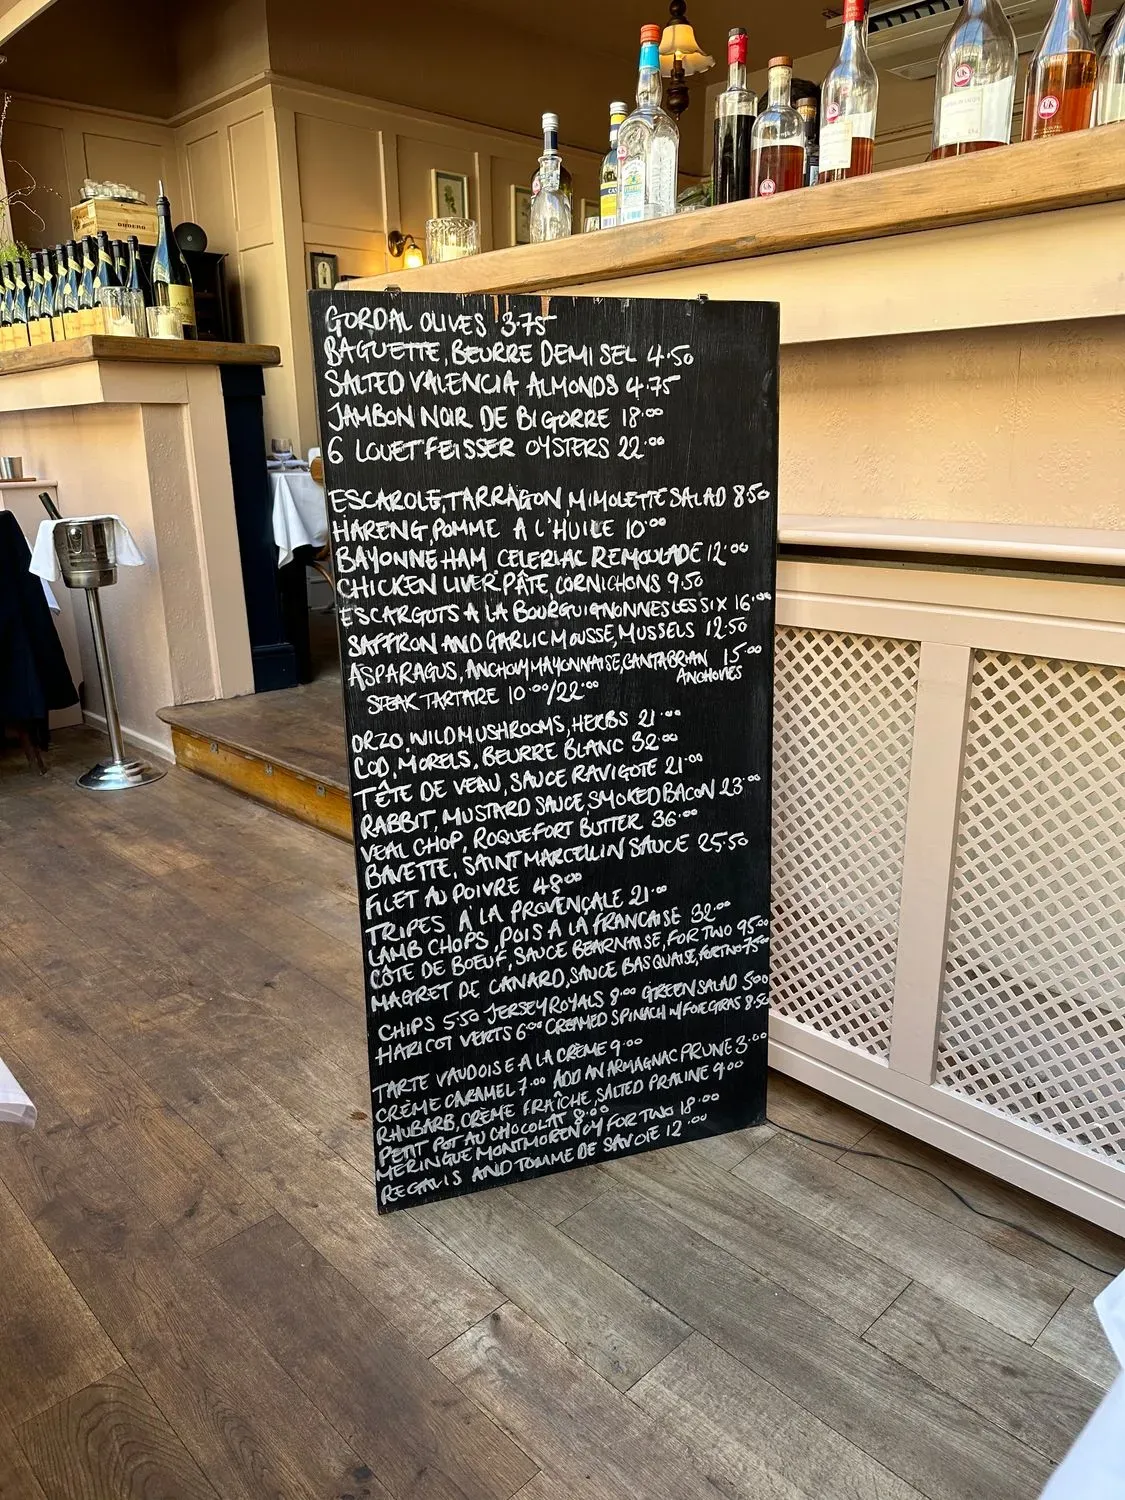 GORDAL OLIVES 3.75
BAGUETTE, BEURRE DEMI SEL 4.50
SALTED VALENCIA ALMONDS 4.75
JAMBON NOIR DE BIGORRE 18.00
6 LOUET FEISSER OYSTERS 22.00
ESCAROLE, TARRAGON, MIMOLETTE SALAD 8.50
HARENG, POMME A L'HUILE 10.00
BAYONNE HAM CELERIAC REMOULADE 12.00
CHICKEN LIVER PÂTE, CORNICHONS 9.50
ESCARGOTS A LA BOURGUIGNONNES LES SIX 16.00
SAFFRON AND GARLIC MOUSSE, MUSSELS 12.50
ASPARAGUS, ANCHOVY MAYONNAISE, CANTABRIAN 15.00
ANCHOVIES
STEAK TARTARE 10.00/22.00
ORZO, WILD MUSHROOMS, HERBS 21.00
COD, MORELS, BEURRE BLANC 32.00
TÊTE DE VEAU, SAUCE RAVIGOTE 21.00
RABBIT, MUSTARD SAUCE SMOKED BACON 23.00
VEAL CHOP, ROQUEFORT BUTTER 36.00
BAVETTE, SAINT MARCELLIN SAUCE 25.50
FILET AU POIVRE 48.00
TRIPES A LA PROVENÇALE 21.00
LAMB CHOPS, POIS A LA FRANCAISE 32.00
CÔTE DE BOEUF, SAUCE BEARNAISE, FOR TWO 95.00
MAGRET DE CANARD, SAUCE BASQUAISE, FOR TWO 75.00
CHIPS 5.50 JERSEY ROYALS 8.00 GREEN SALAD 5.00
HARICOT VERTS 6.00 CREAMED SPINACH W/ FOIE GRAS 8.50
TARTE VAUDOISE A LA CRÈME 9.00
CRÈME CARAMEL 7.00 ADD AN ARMAGNAC PRUNE 3.00
RHUBARB, CRÈME FRAÎCHE, SALTED PRALINE 9.00
PETIT POT AU CHOCOLAT 8.00
MERINGUE MONTMORENCY FOR TWO 18.00
REGALIS AND TOMME DE SAVOIE 12.00